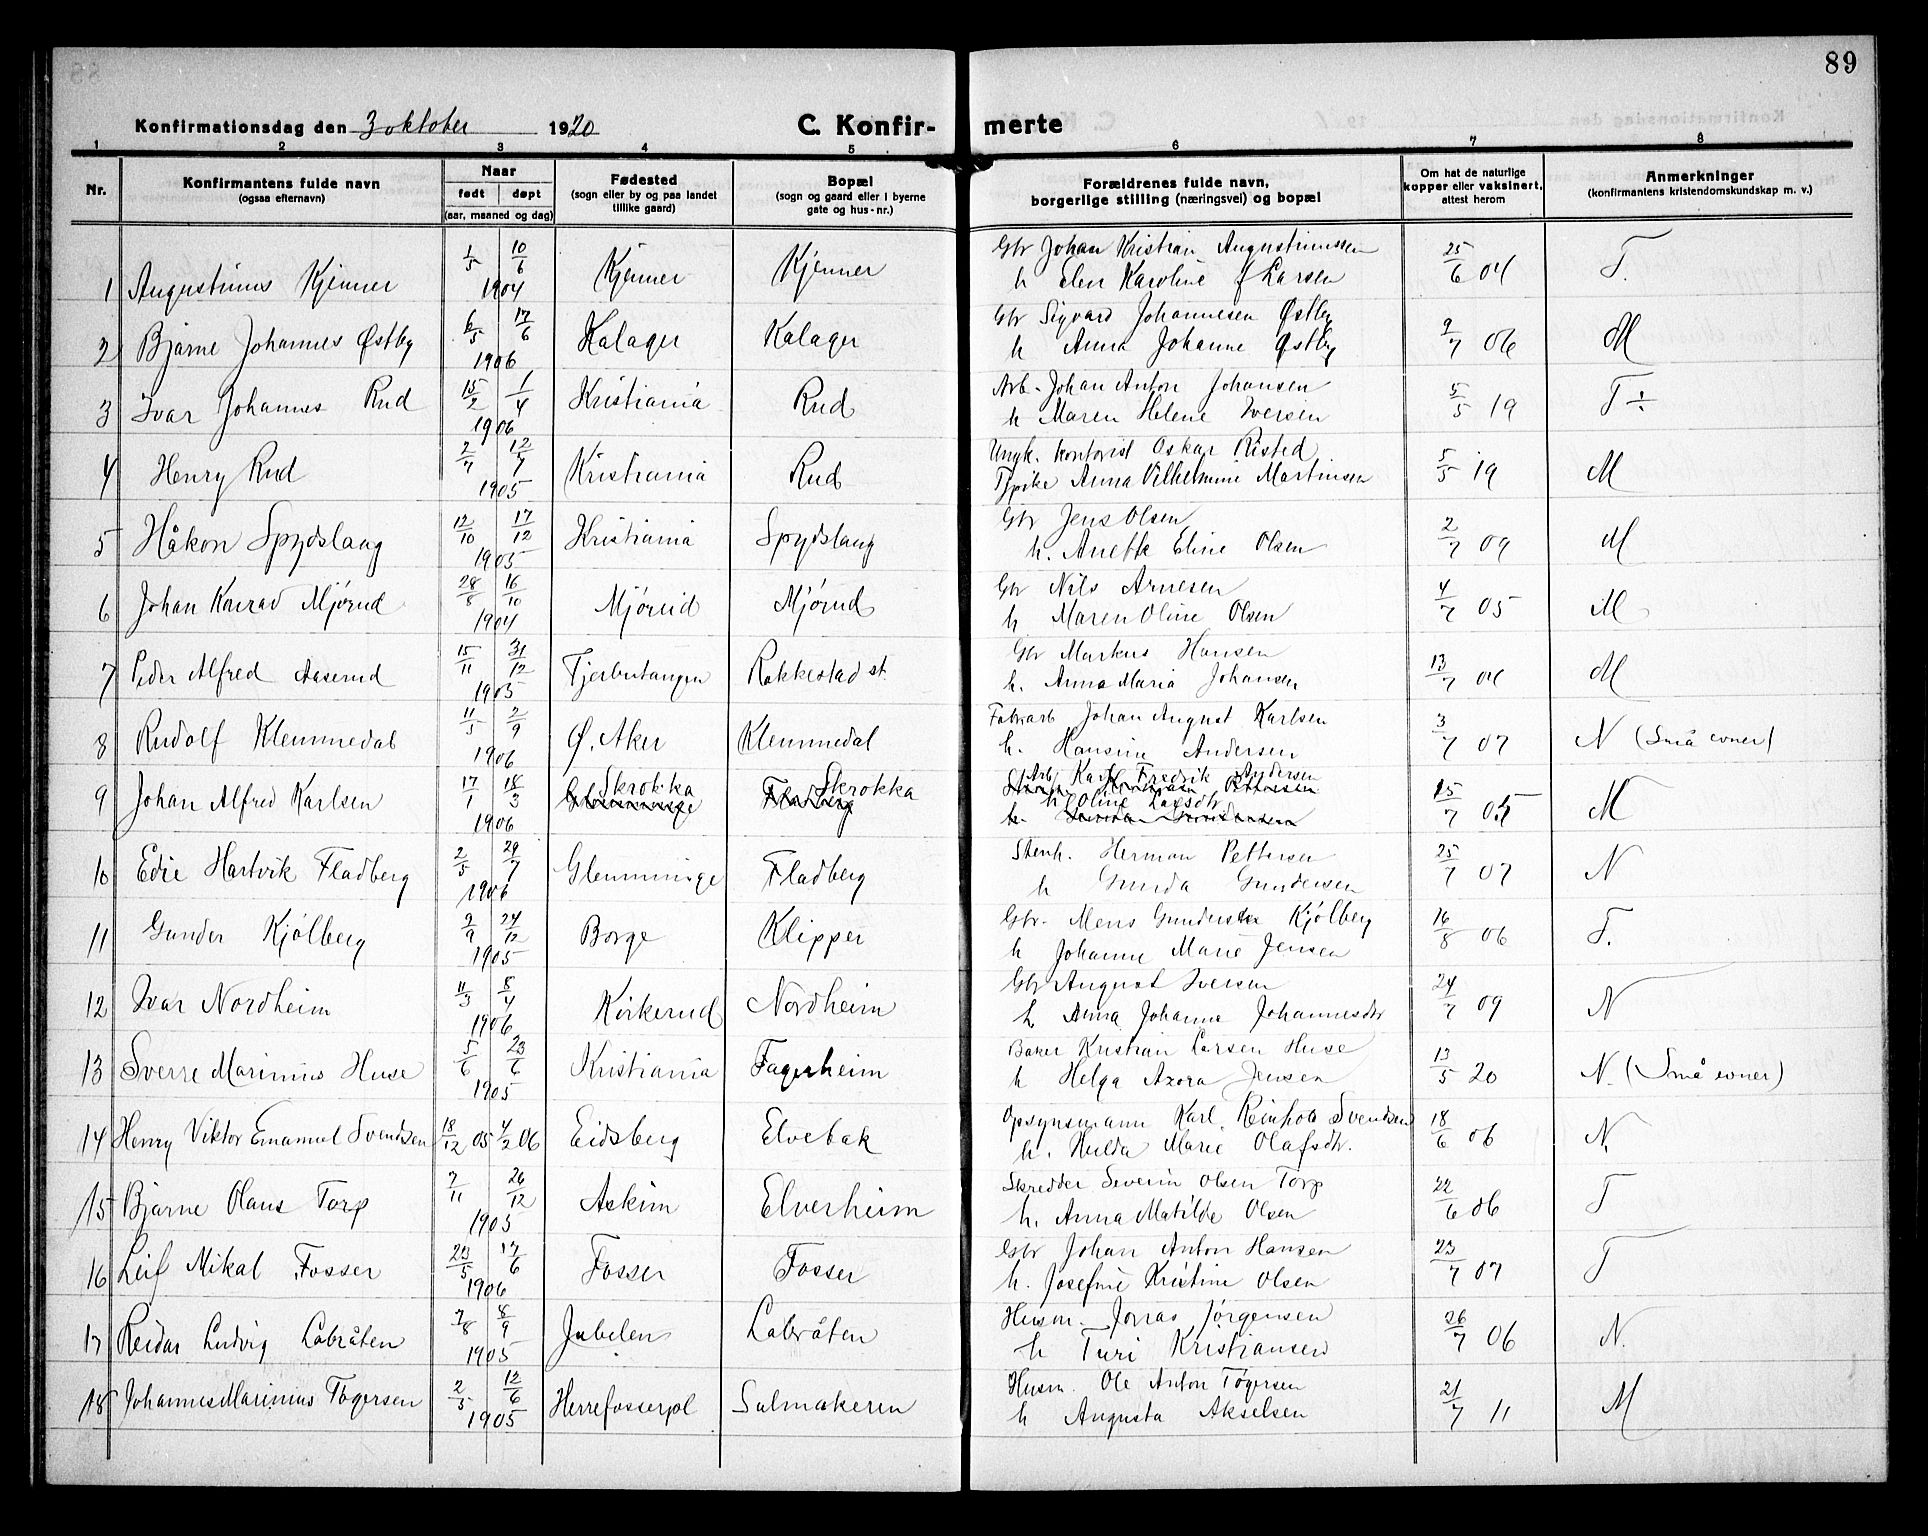 89
Konfirmationsdag den 3 oktober 1920
C. Konfir-merte
1 2 3 4 5 6 7 8
Nr.
Konfirmantens fulde navn
(ogsaa efternavn)
Naar
født døpt
(aar, maaned og dag)
Fødested
(sogn eller by og paa landet
tillike gaard)
Bopæl
(sogn og gaard eller i byerne
gate og hus-nr.)
Forældrenes fulde navn,
borgerlige stilling (næringsvei) og bopæl
Om hat de naturlige
kopper eller vaksinert,
attest herom
Anmerkninger
(konfirmantens kristendomskundskap m. v.)
1 Augustinus Kjenner 1/5 10/6 1904 Kjenner Kjenner Gbr Johan Kristian Augustinussen
h Elen Karoline f Larsen 25/6 04 T.
2 Bjarne Johannes Østby 6/5 17/6 1906 Kalager Kalager Gbr Sigvard Johannesen Østby
h Anna Johanne Østby 9/7 06 M
3 Ivar Johannes Rud 15/2 1/4 1906 Kristiania Rud Arb. Johan Anton Johansen
h Maren Helene Iversen 5/5 19 T÷
4 Henry Rud 2/7 12/7 1905 Kristiania Rud Ungk. kontorist Oskar Risted
Tjpike Anna Vilhelmine Martinsen 5/5 19 M
5 Håkon Spydslaug 12/10 17/12 1905 Kristiania Spydslaug Gbr Jens Olsen
h. Anette Eline Olsen 2/7 09 M
6 Johan Konrad Mjørud 28/8 16/10 1904 Mjørud Mjørud Gbr Nils Arnesen
h Maren Oline Olsen 4/7 05 M
7 Peder Alfred Aaserud 15/11 31/12 1905 Tjerbutangen Rakkestad st. Gbr Markus Hansen
h. Anna Maria Johansen 13/7 06 M
8 Rudolf Klemmedal 11/5 2/9 1906 Ø. Aker Klemmedal Fabrarb Johan August Karlsen
h. Hansine Andersen 3/7 07 N (Små evner)
9 Johan Alfred Karlsen 17/1 18/3 1906 Skrokka Glemminge Skrokka Fladberg Arb Karl Fredrik Andersen
h Oline Larsdtr 15/7 05 M
10 Edie Hartvik Fladberg 2/5 29/7 1906 Glemminge Fladberg Stenh. Herman Pettersen
h Gunda Gundersen 25/7 07 N
11 Gunder Kjølberg 2/9 24/12 1905 Borge Klipper Gbr. Mens Gundersen Kjølberg
h Johanne Marie Jensen 16/8 06 T.
12 Ivar Nordheim 11/3 8/4 1906 Kirkerud Nordheim Gbr August Iversen
h Anna Johanna Johannesdtr 24/7 09 N
13 Sverre Marinius Huse 5/6 23/6 1905 Kristiania Fagerheim Baker Kristian Larsen Huse
h Helga Azora Jensen 13/5 20 N. (Små evner)
14 Henry Viktor Emanuel Svendsen 18/12 05 4/2 06 Eidsberg Elvebak Opsynsmann Karl Reinhold Svendsen
h. Hulda Marie Olafsdtr. 18/6 06 N.
15 Bjarne Olaus Torp 7/11 26/12 1905 Askim Elverheim Skredder Severin Olsen Torp
h. Anna Matilde Olsen 22/6 06 T
16 Leif Mikal Fosser 23/5 17/6 1906 Fosser Fosser Gbr Johan Anton Hansen
h. Josefine Kristine Olsen 23/7 07 T
17 Reidar Ludvig Labråten 7/8 8/9 1905 Jubelen Labråten Husm. Jonas Jørgensen
h Turi Kristiansen 26/7 06 N.
18 Johannes Marinius Tøgersen 2/5 12/6 1905 Herrefosserpl Salmakeren Husm. Ole Anton Tøgersen
h Augusta Akselsen 21/7 11 M